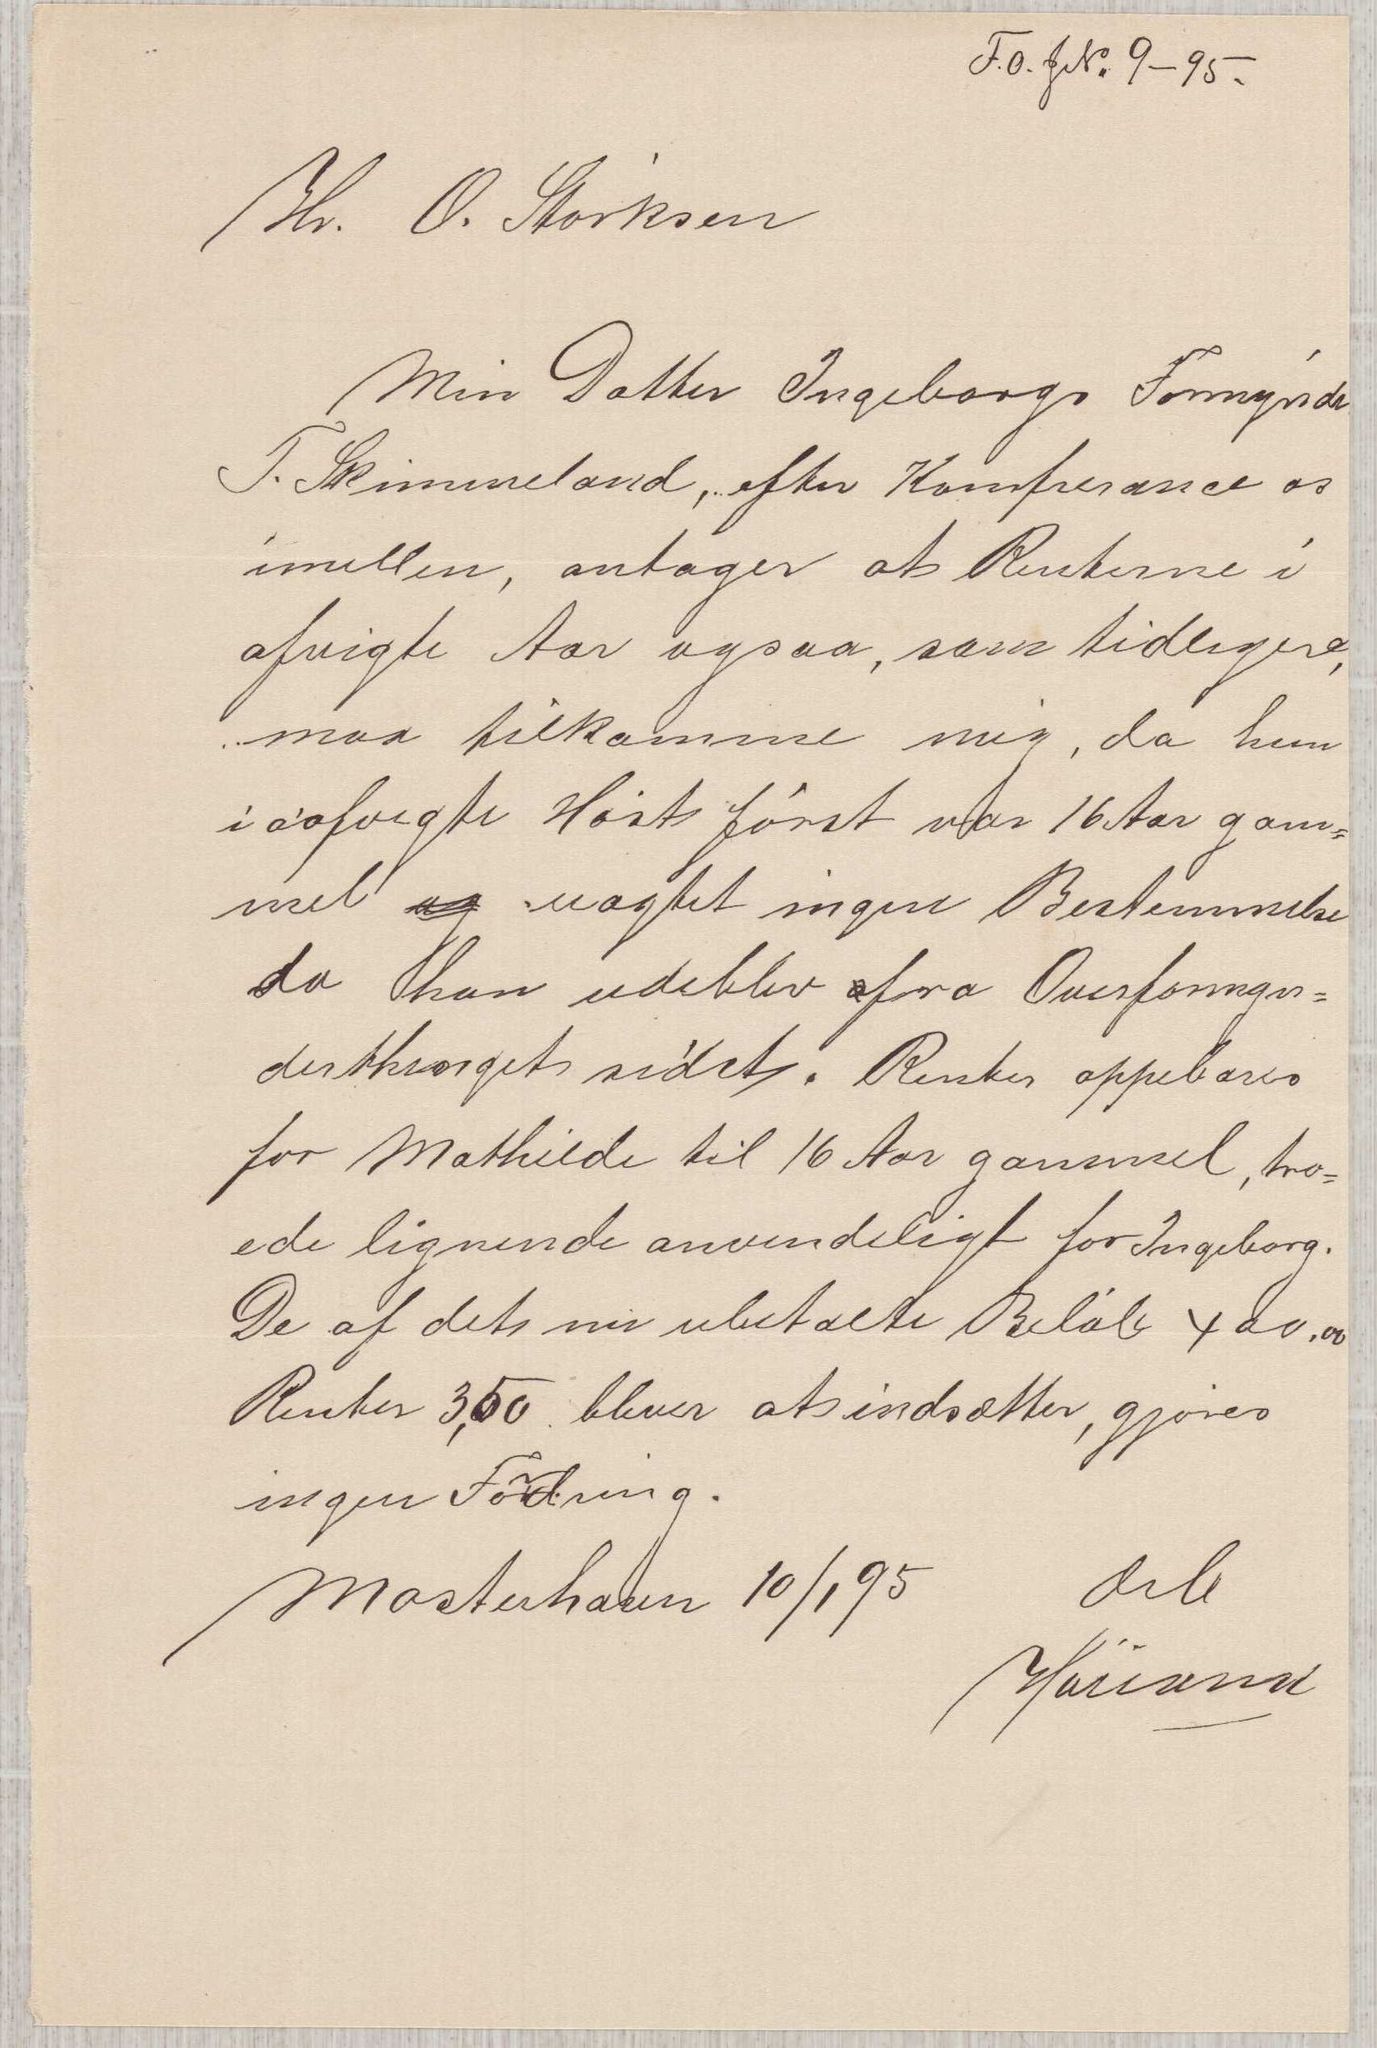 F.O. JNo. 9–95.
Hr. O. Storksen
Min Datter Ingeborgs Formynder
T. Skimmeland, efter Komfreranse os
imellen, antager at Renterne i
afvigte Aar ogsaa, som tidligere,
maa tilkomme mig, da hun
i afvegte Høst først var 16 Aar gam=
mel uagtet ingen Bestemmelse
da han udeblev fra Overformyn=
dertherget sidst. Renter oppebares
for Mathilde til 16 Aar gammel, tro=
ede lignende anvendeligt for Ingeborg.
De af det mi ubetalte Beløb 400.00
Renter 3,50 blever at indsætter, gjøres
ingen Fordring.
Mosterhavn 10/1 95 Ærb